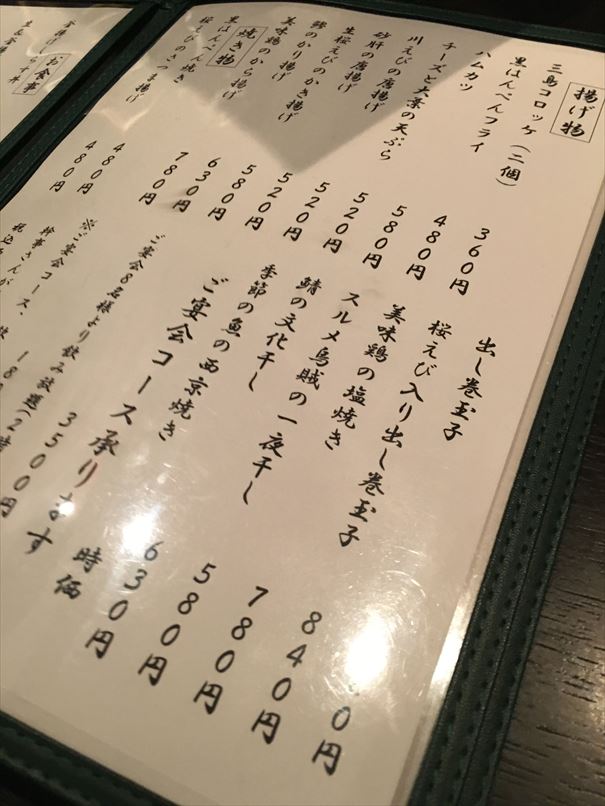 揚げ物
三島コロッケ（二個） 360円
黒はんぺんフライ 480円
ハムカツ 580円
チーズと大葉の天ぷら 520円
川えびの唐揚げ 520円
砂肝の唐揚げ 520円
生桜えびのかき揚げ 580円
鯵のかり揚げ 630円
美味鶏のから揚げ 780円
焼き物
黒はんぺん焼き 480円
桜えびのさつま揚げ 480円
出し巻玉子 0円
桜えび入り出し巻玉子 840円
美味鶏の塩焼き 780円
スルメ烏賊の一夜干し 580円
鯖の文化干し 630円
季節の魚の西京焼き 時価
ご宴会コース承ります
ご宴会8名様より飲み放題 3500円
※ご宴会コース、
幹事さんが
お食事